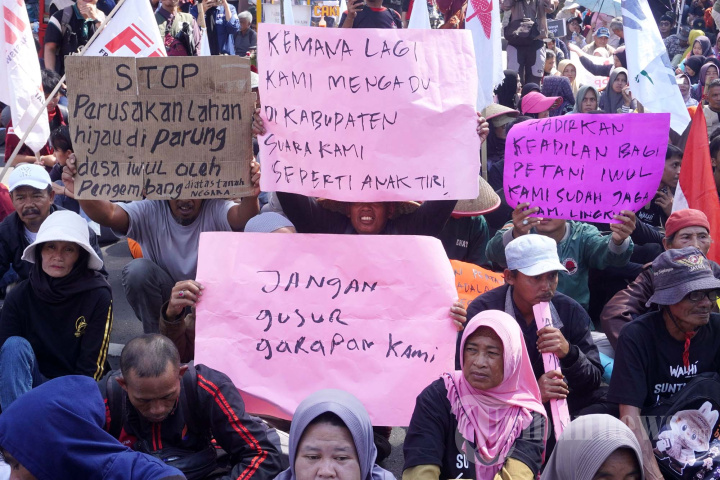 STOP
Perusakan Lahan
hijau di PARUNG
desa iwul oleh
Pengembang diatas tanah
NEGARA
KEMANA LAGI
KAMI MENGADU
DI KABUPATEN
SUARA KAMI
SEPERTI ANAK TIRI
HADIRKAN
KEADILAN BAGI
PETANI IWUL
KAMI SUDAH JAGA
JANGAN
gusur
garapan kami
WALHI